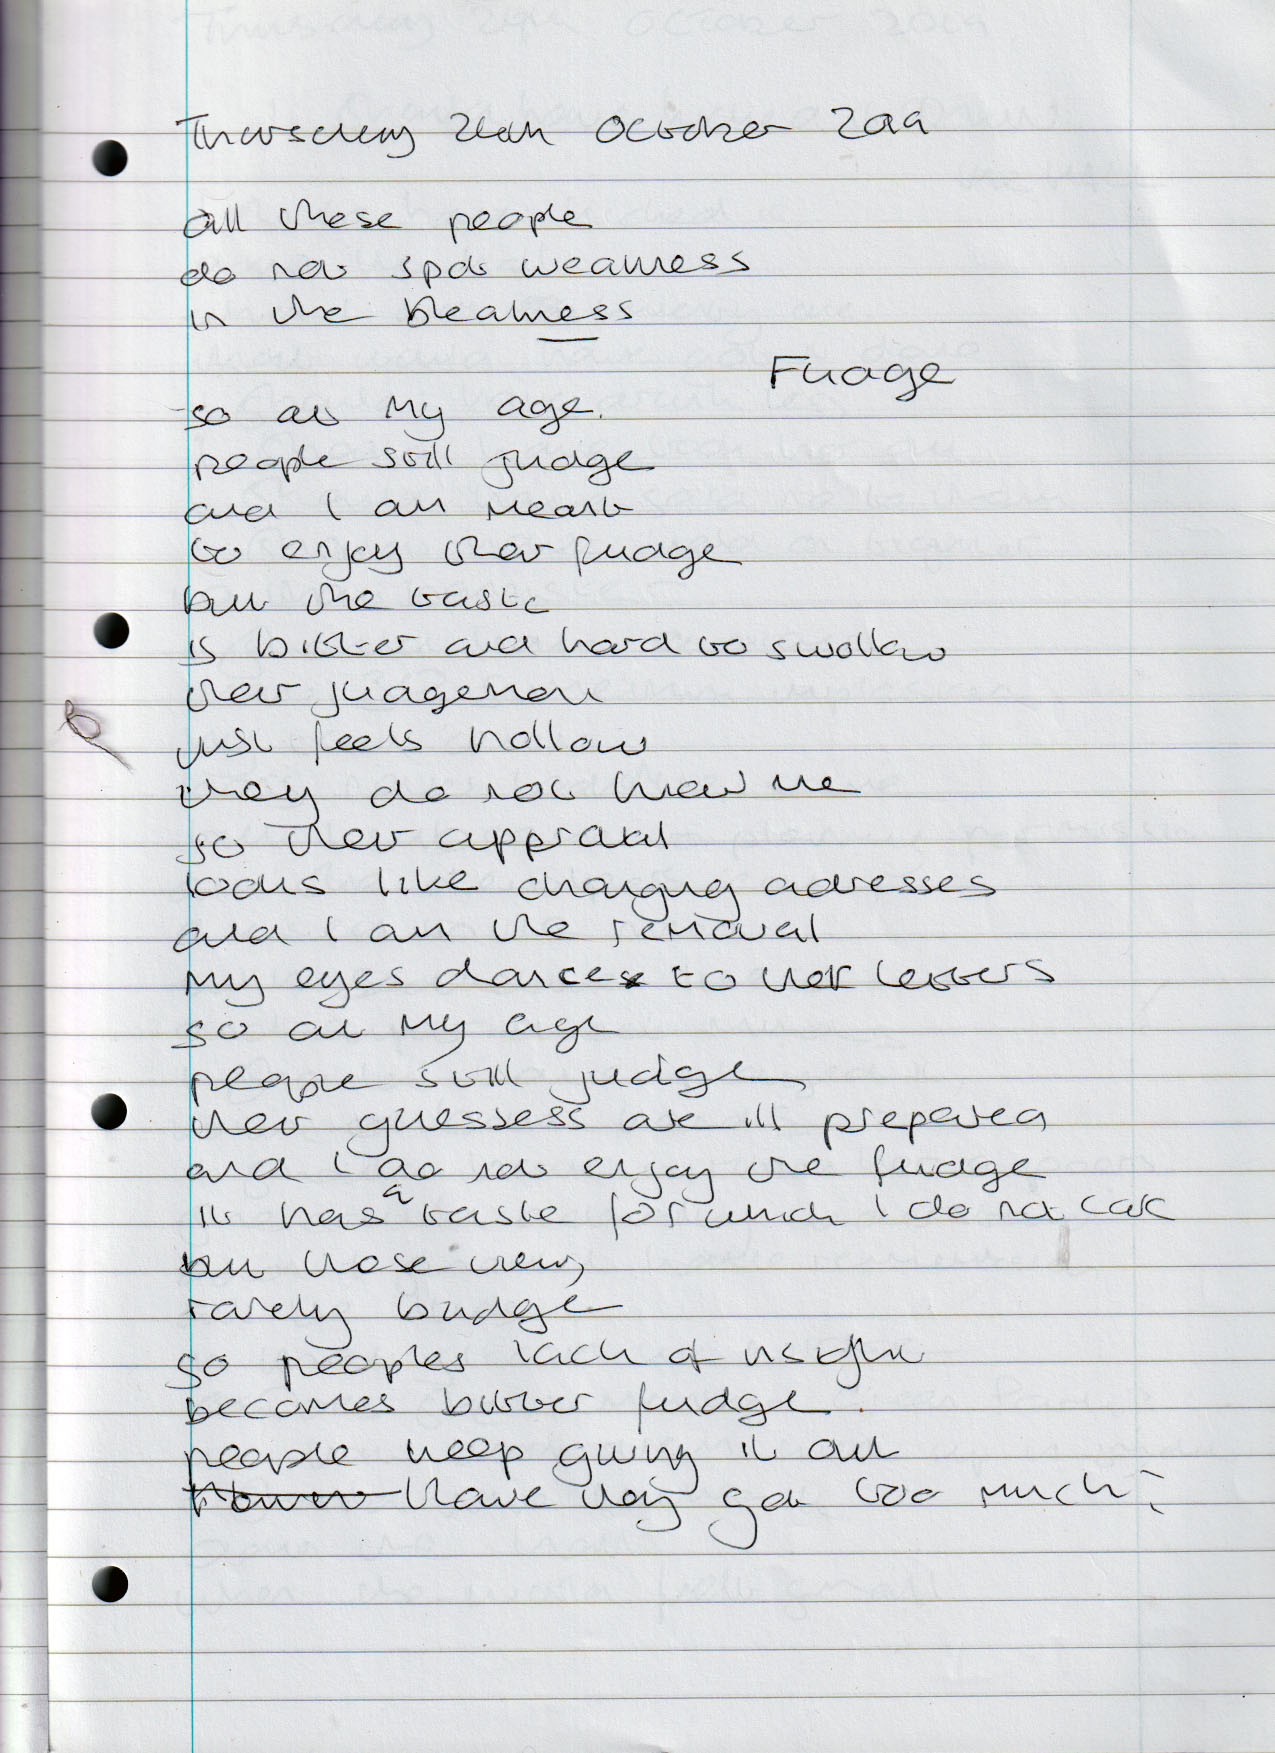 Thursday 24th October 2019
all these people
do not spot weakness
in the bleakness
Fudge
so at my age.
people still judge
and I am meant
to enjoy their fudge
but the taste
is bitter and hard to swallow
their judgement
just feels hollow
they do not know me
so their approval
looks like changing adresses
and I am the removal
my eyes dances to their letters
so at my age
people still judge
their guessess are ill prepared
and I do not enjoy the fudge
it has a taste for which I do not care
but those views
rarely budge
so peoples lack of insight
becomes bitter fudge.
people keep giving it out
have they got too much?